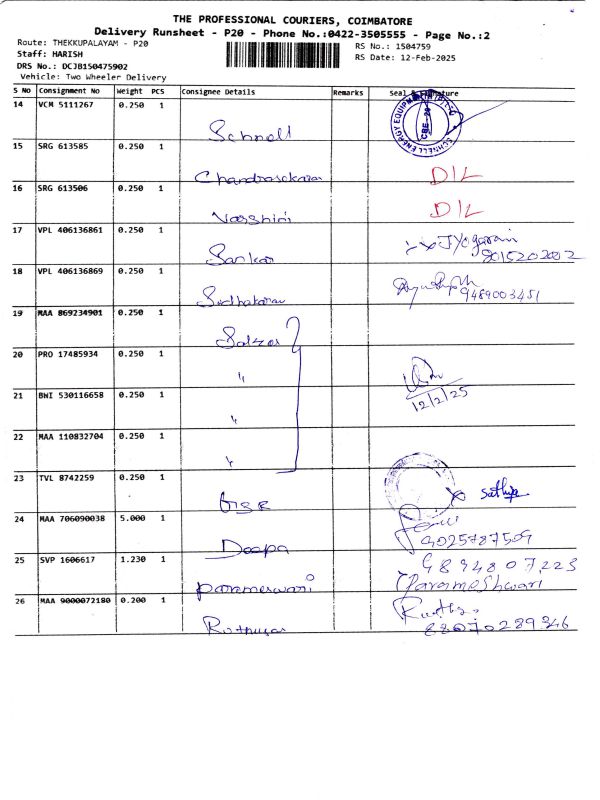 THE PROFESSIONAL COURIERS, COIMBATORE
Delivery Runsheet - P20 - Phone No.:0422-3505555 - Page No.:2
Route: THEKKUPALAYAM - P20
RS No.: 1504759
Staff: HARISH
RS Date: 12-Feb-2025
DRS No.: DCJB150475902
Vehicle: Two Wheeler Delivery
S No Consignment No Weight PCS Consignee Details Remarks Seal & Signature
14 VCM 5111267 0.250 1 Schnell
SCHNELL ENERGY EQUIPMENT (P) CBE - 29
15 SRG 613585 0.250 1 Chandrasekaran D/L
16 SRG 613506 0.250 1 Varshini D/L
17 VPL 406136861 0.250 1 Sankar
18 VPL 406136869 0.250 1 Sudhakaran 9489003451
19 MAA 869234901 0.250 1 Salzer
20 PRO 17485934 0.250 1 "
21 BWI 530116658 0.250 1 " 12/2/25
22 MAA 110832704 0.250 1 "
23 TVL 8742259 0.250 1 Sathya
24 MAA 706090038 5.000 1 Deepa 9025787509
25 SVP 1606617 1.230 1 Parameswari 9894807223
Parameshwari
26 MAA 9000072180 0.200 1 88070289346